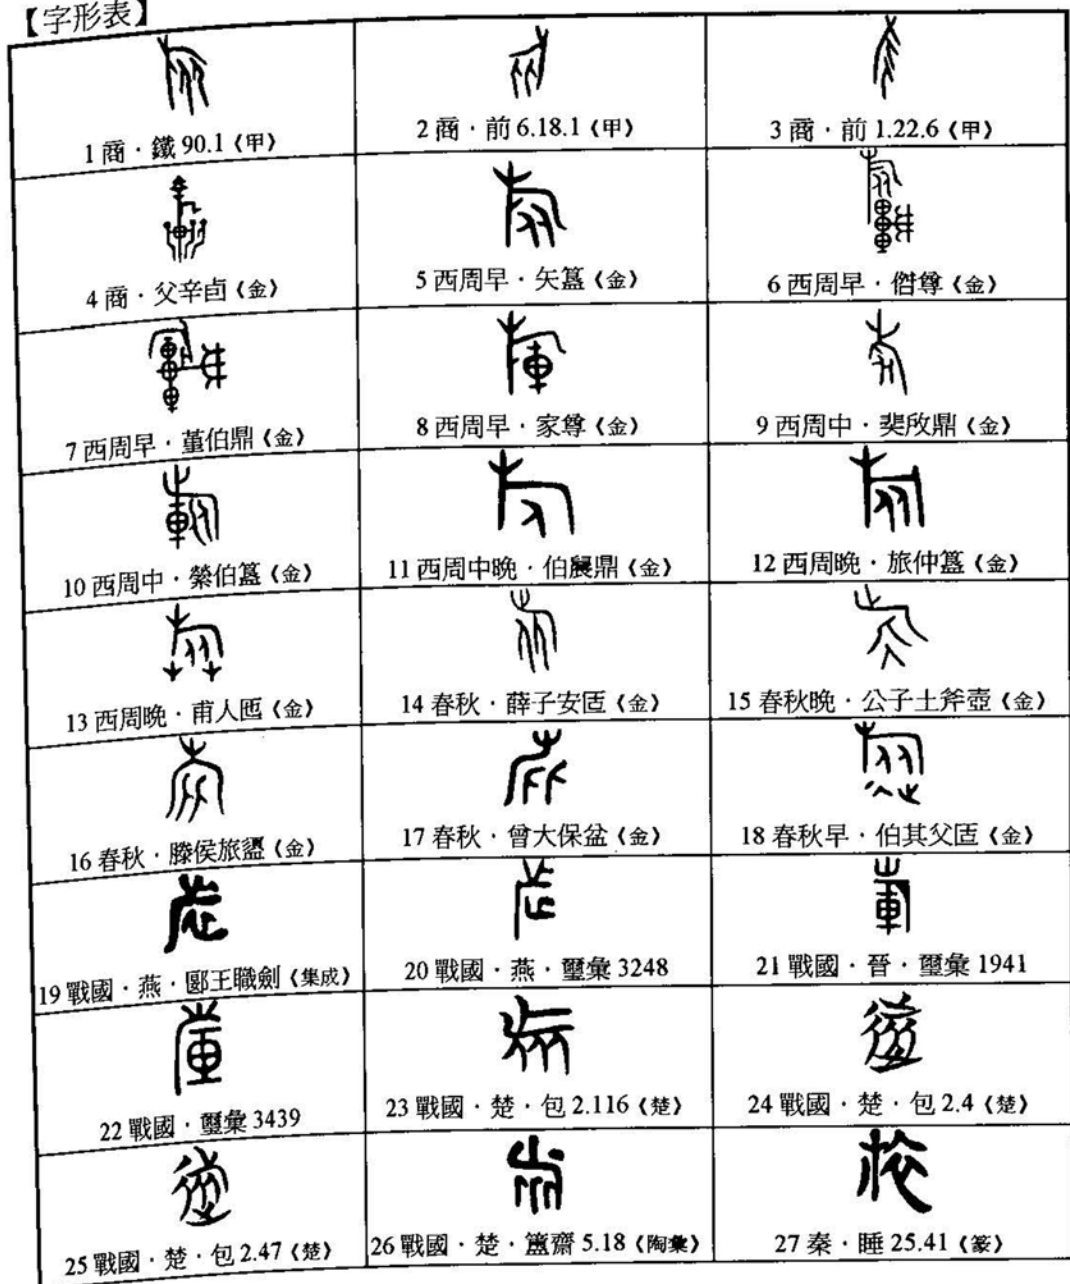 【字形表】
1 商・鐵 90.1《甲》
2 商・前 6.18.1《甲》
3 商・前 1.22.6《甲》
4 商・父辛卣《金》
5 西周早・夨簋《金》
6 西周早・㒭尊《金》
7 西周早・堇伯鼎《金》
8 西周早・家尊《金》
9 西周中・㛗啟鼎《金》
10 西周中・縈伯簋《金》
11 西周中晚・伯㫳鼎《金》
12 西周晚・旅仲簋《金》
13 西周晚・甫人匜《金》
14 春秋・薛子安匜《金》
15 春秋晚・公子土斧壺《金》
16 春秋・滕侯旅盨《金》
17 春秋・曾大保盆《金》
18 春秋早・伯其父匜《金》
19 戰國・燕・郾王職劍《集成》
20 戰國・燕・璽彙 3248
21 戰國・晉・璽彙 1941
22 戰國・璽彙 3439
23 戰國・楚・包 2.116《楚》
24 戰國・楚・包 2.4《楚》
25 戰國・楚・包 2.47《楚》
26 戰國・楚・簠齋 5.18《陶彙》
27 秦・睡 25.41《篆》